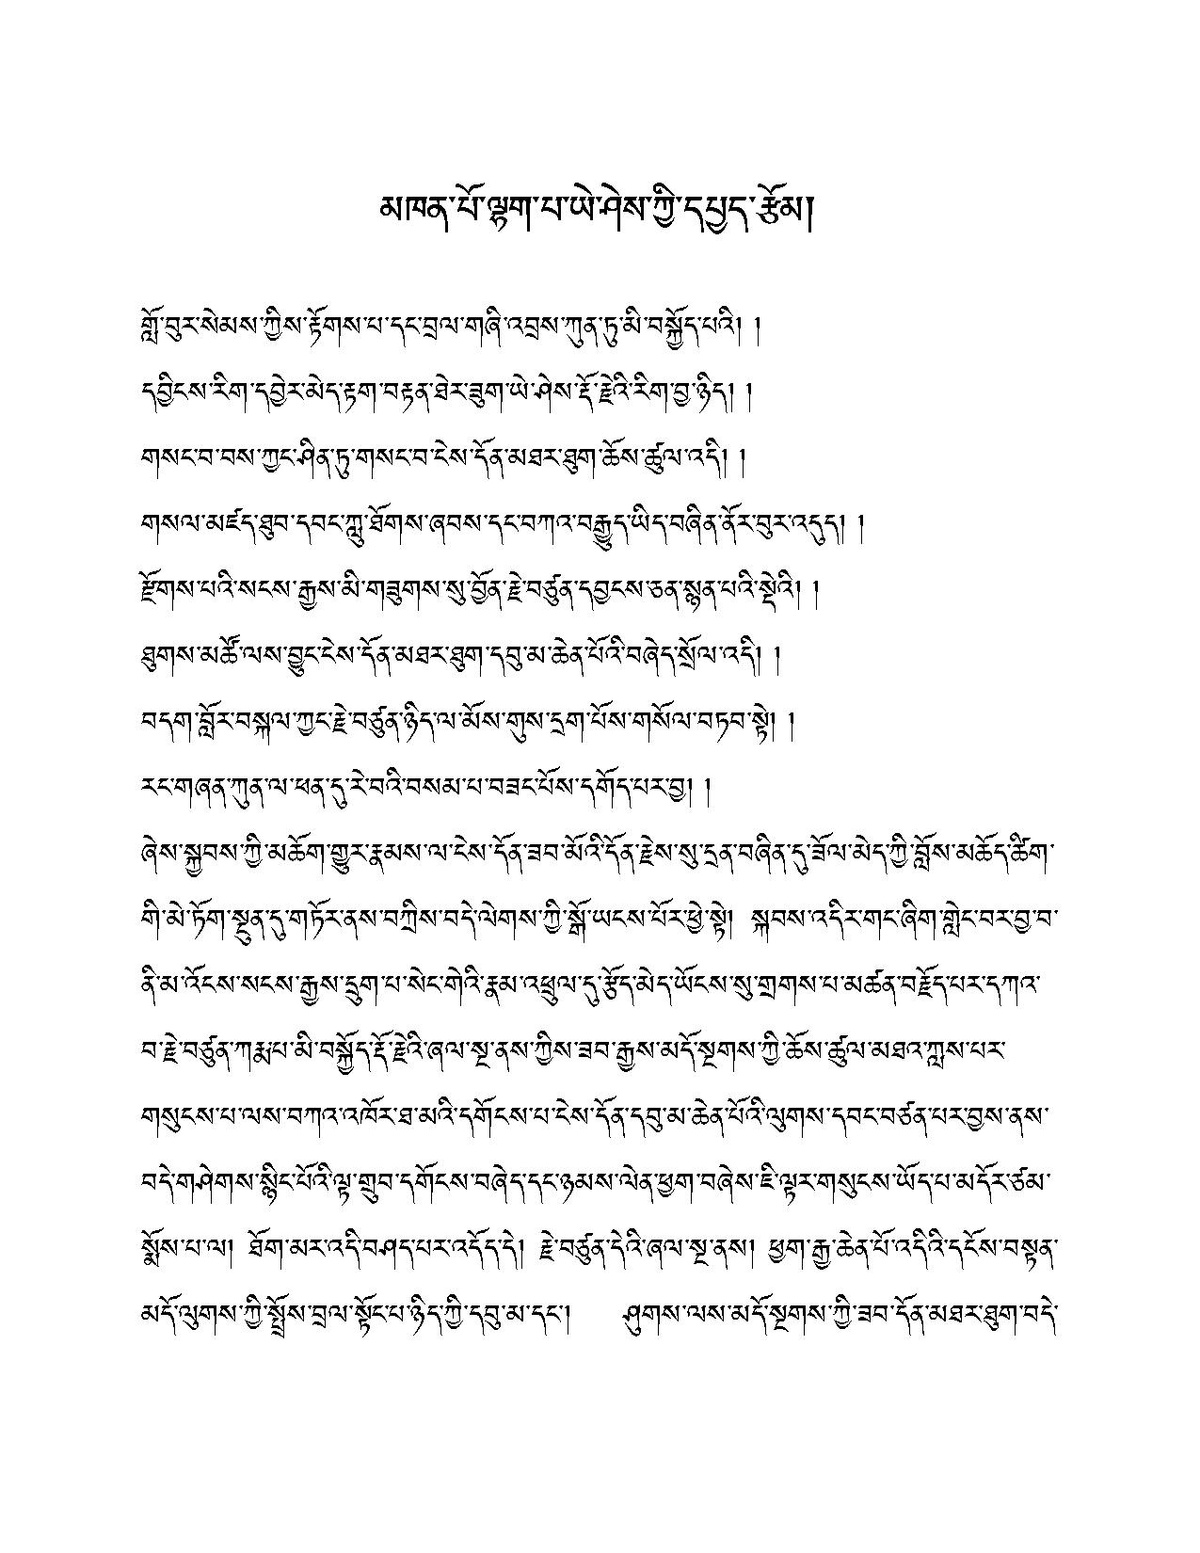 མཁན་པོ་ལྷག་པ་ཡེ་ཤེས་ཀྱི་དཔྱད་རྩོམ།
གློ་བུར་སེམས་ཀྱིས་རྟོགས་པ་དང་བྲལ་གཞི་འབྲས་ཀུན་ཏུ་མི་བསྐྱོད་པའི། །
དབྱིངས་རིག་དབྱེར་མེད་རྟག་བརྟན་ཐེར་ཟུག་ཡེ་ཤེས་རྡོ་རྗེའི་རིག་བྱ་ཉིད། །
གསང་བ་བས་ཀྱང་ཤིན་ཏུ་གསང་བ་ངེས་དོན་མཐར་ཐུག་ཆོས་ཚུལ་འདི། །
གསལ་མཛད་ཐུབ་དབང་ཀླུ་ཐོགས་ཞབས་དང་བཀའ་བརྒྱུད་ཡིད་བཞིན་ནོར་བུར་འདུད། །
རྫོགས་པའི་སངས་རྒྱས་མི་གཟུགས་སུ་བྱོན་རྗེ་བཙུན་དབྱངས་ཅན་སྙན་པའི་སྡེའི། །
ཐུགས་མཚོ་ལས་བྱུང་ངེས་དོན་མཐར་ཐུག་དབུ་མ་ཆེན་པོའི་བཞེད་སྲོལ་འདི། །
བདག་བློར་བསྐལ་ཀྱང་རྗེ་བཙུན་ཉིད་ལ་མོས་གུས་དྲག་པོས་གསོལ་བཏབ་སྟེ། །
རང་གཞན་ཀུན་ལ་ཕན་དུ་རེ་བའི་བསམ་པ་བཟང་པོས་དགོད་པར་བྱ། །
ཞེས་སྐྱབས་ཀྱི་མཆོག་གྱུར་རྣམས་ལ་ངེས་དོན་ཟབ་མོའི་དོན་རྗེས་སུ་དྲན་བཞིན་དུ་ཟོལ་མེད་ཀྱི་བློས་མཆོད་ཚིག་
གི་མེ་ཏོག་སྔུན་དུ་གཏོར་ནས་བཀྲིས་བདེ་ལེགས་ཀྱི་སྒོ་ཡངས་པོར་ཕྱེ་སྟེ། སྐབས་འདིར་གང་ཞིག་གླེང་བར་བྱ་བ་
ནི་མ་འོངས་སངས་རྒྱས་དྲུག་པ་སེང་གེའི་རྣམ་འཕྲུལ་དུ་རྩོད་མེད་ཡོངས་སུ་གྲགས་པ་མཚན་བརྗོད་པར་དཀའ་
བ་རྗེ་བཙུན་ཀརྨཔ་མི་བསྐྱོད་རྡོ་རྗེའི་ཞལ་སྔ་ནས་ཀྱིས་ཟབ་རྒྱས་མདོ་སྔགས་ཀྱི་ཆོས་ཚུལ་མཐའ་ཀླས་པར་
གསུངས་པ་ལས་བཀའ་འཁོར་ཐ་མའི་དགོངས་པ་ངེས་དོན་དབུ་མ་ཆེན་པོའི་ལུགས་དབང་བཙན་པར་བྱས་ནས་
བདེ་གཤེགས་སྙིང་པོའི་ལྟ་གྲུབ་དགོངས་བཞེད་དང་ཉམས་ལེན་ཕྱག་བཞེས་ཇི་ལྟར་གསུངས་ཡོད་པ་མདོར་ཙམ་
སྨོས་པ་ལ། ཐོག་མར་འདི་བཤད་པར་འདོད་དེ། རྗེ་བཙུན་དེའི་ཞལ་སྔ་ནས། ཕྱག་རྒྱ་ཆེན་པོ་འདིའི་དངོས་བསྟན་
མདོ་ལུགས་ཀྱི་སྤྲོས་བྲལ་སྟོང་པ་ཉིད་ཀྱི་དབུ་མ་དང་། ཤུགས་ལས་མདོ་སྔགས་ཀྱི་ཟབ་དོན་མཐར་ཐུག་བདེ་